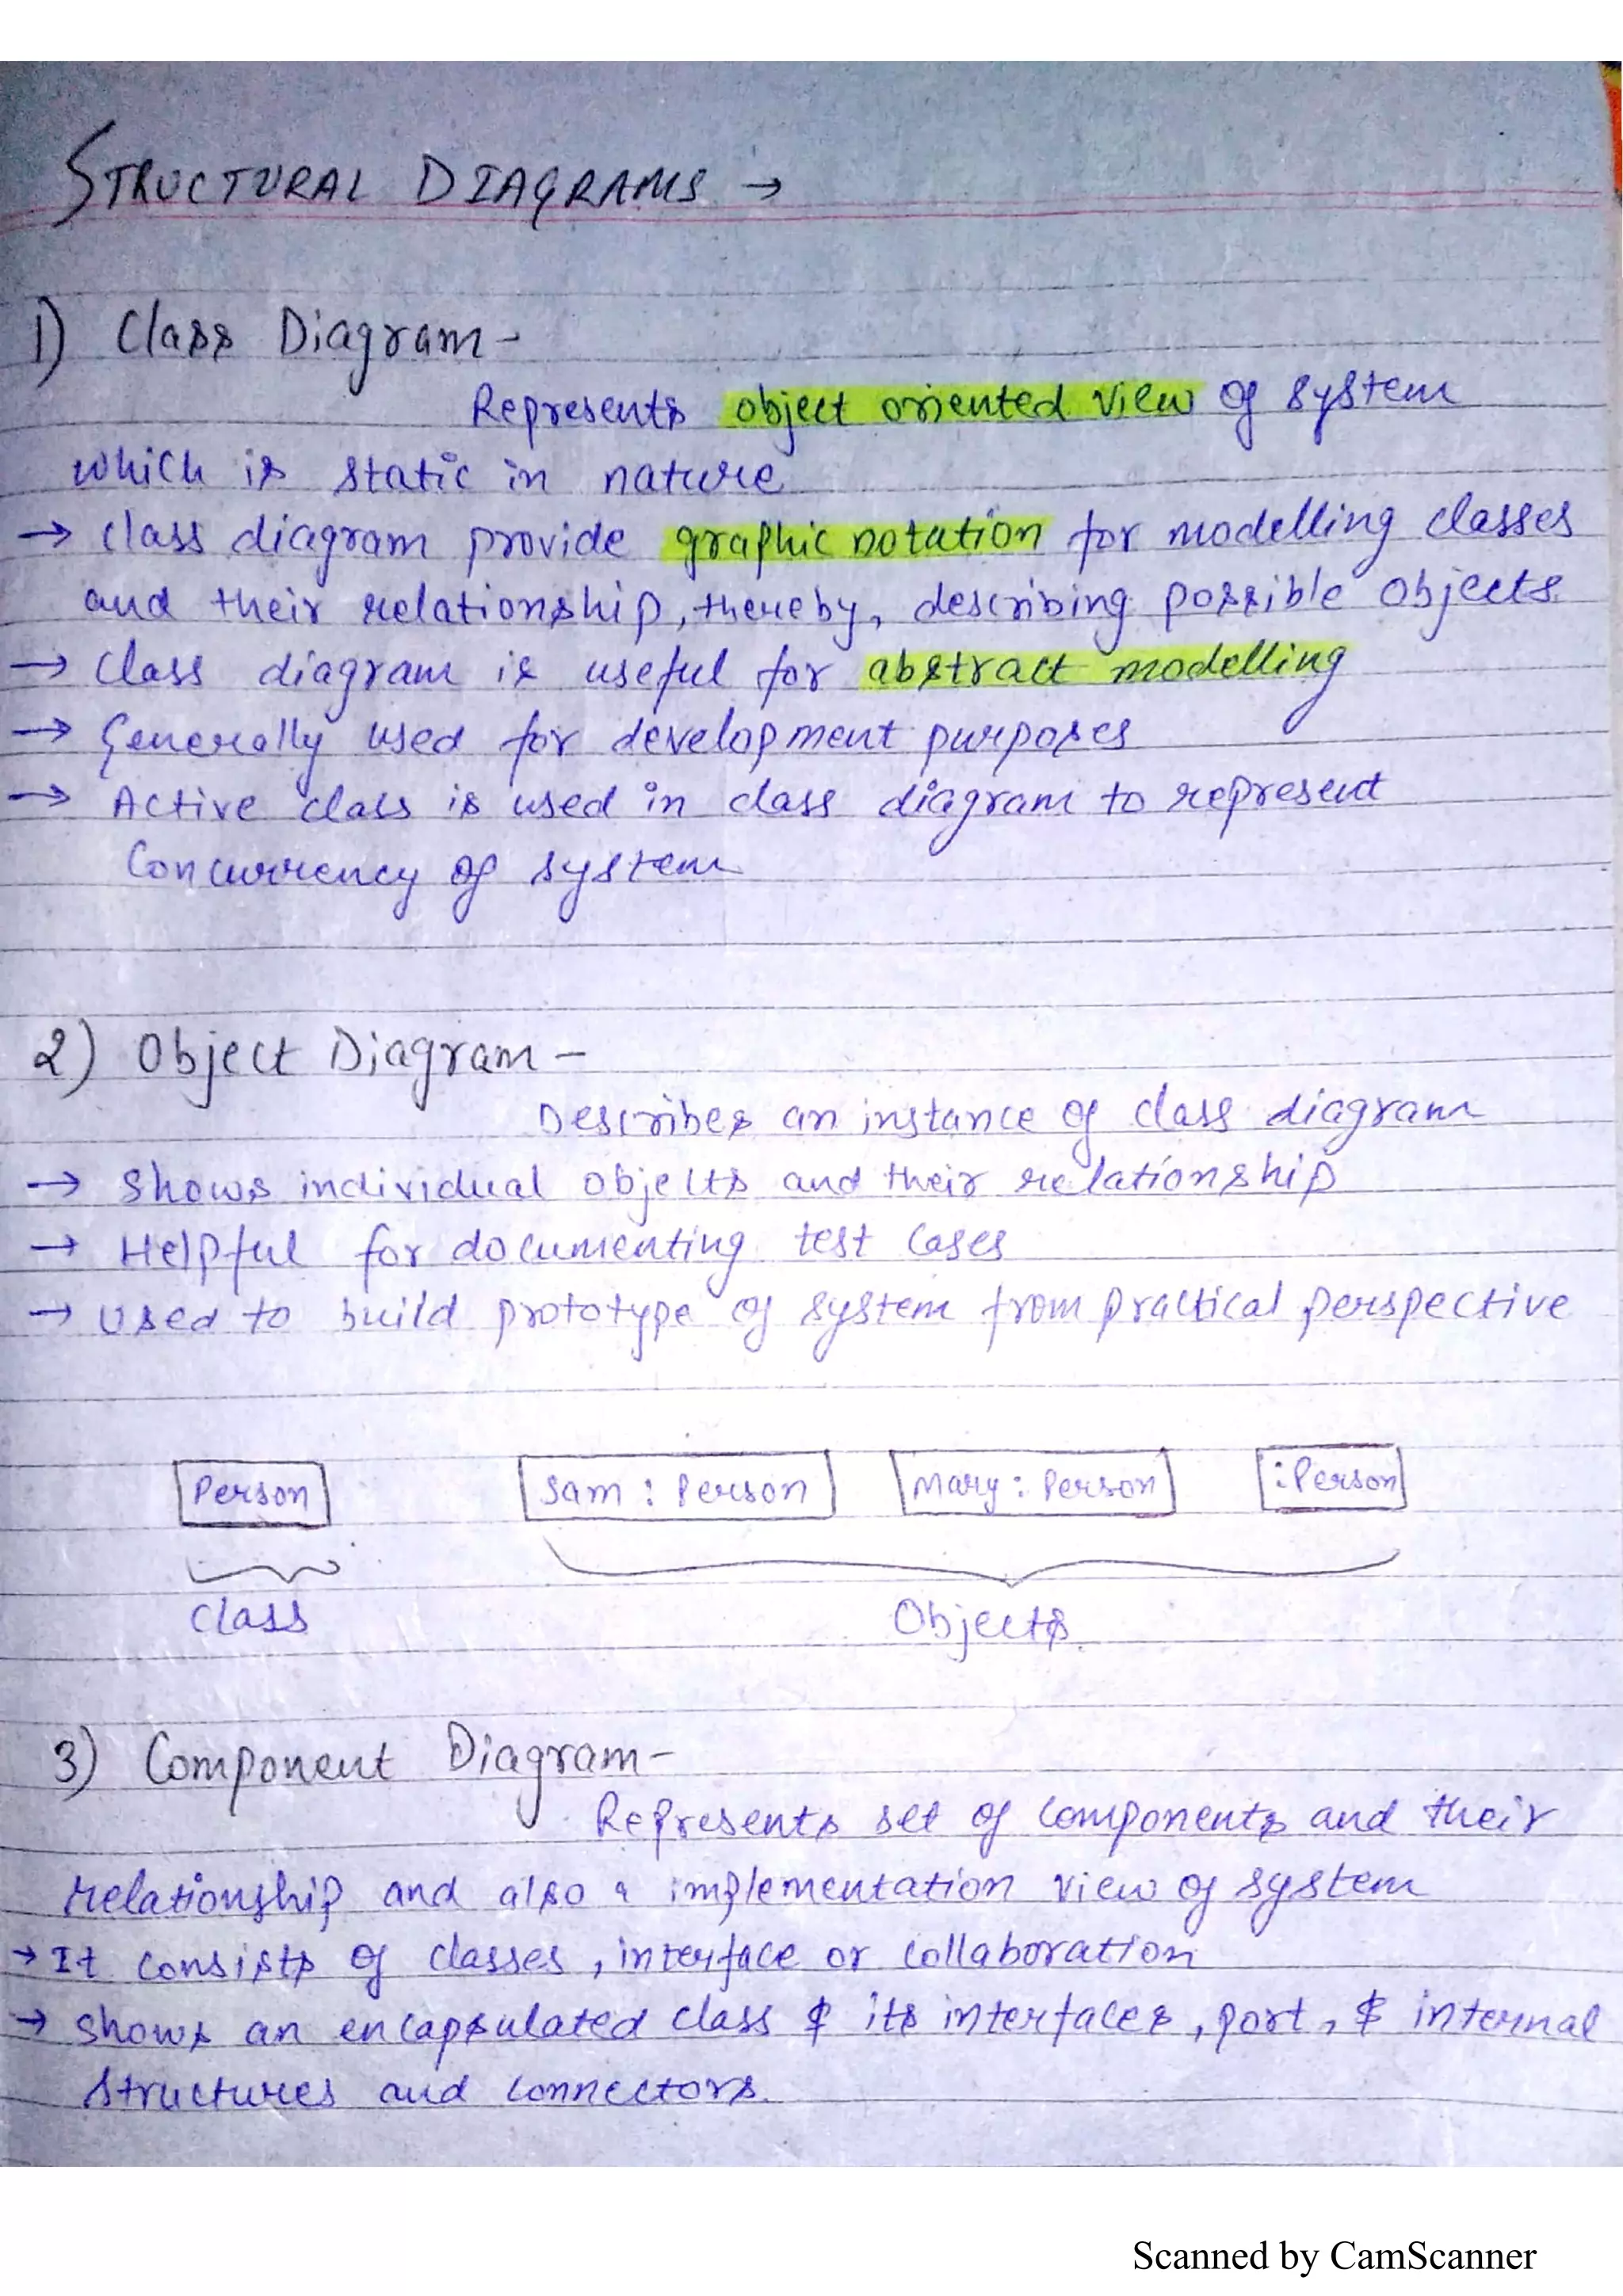 STRUCTURAL DIAGRAMS →
1) Class Diagram -
Represents object oriented view of system
which is static in nature
→ class diagram provide graphic notation for modelling classes
and their relationship, thereby, describing possible objects
→ Class diagram is useful for abstract modelling
→ Generally used for development purposes
→ Active class is used in class diagram to represent
Concurrency of system
2) Object Diagram -
Describes an instance of class diagram
→ Shows individual objects and their relationship
→ Helpful for documenting test cases
→ Used to build prototype of system from practical perspective
Person Sam : Person Mary : Person : Person
Class Objects
3) Component Diagram -
Represents set of components and their
relationship and also a implementation view of system
→ It consists of classes, interface or collaboration
→ Shows an encapsulated class & its interfaces, port, & internal
structures and connectors.
Scanned by CamScanner